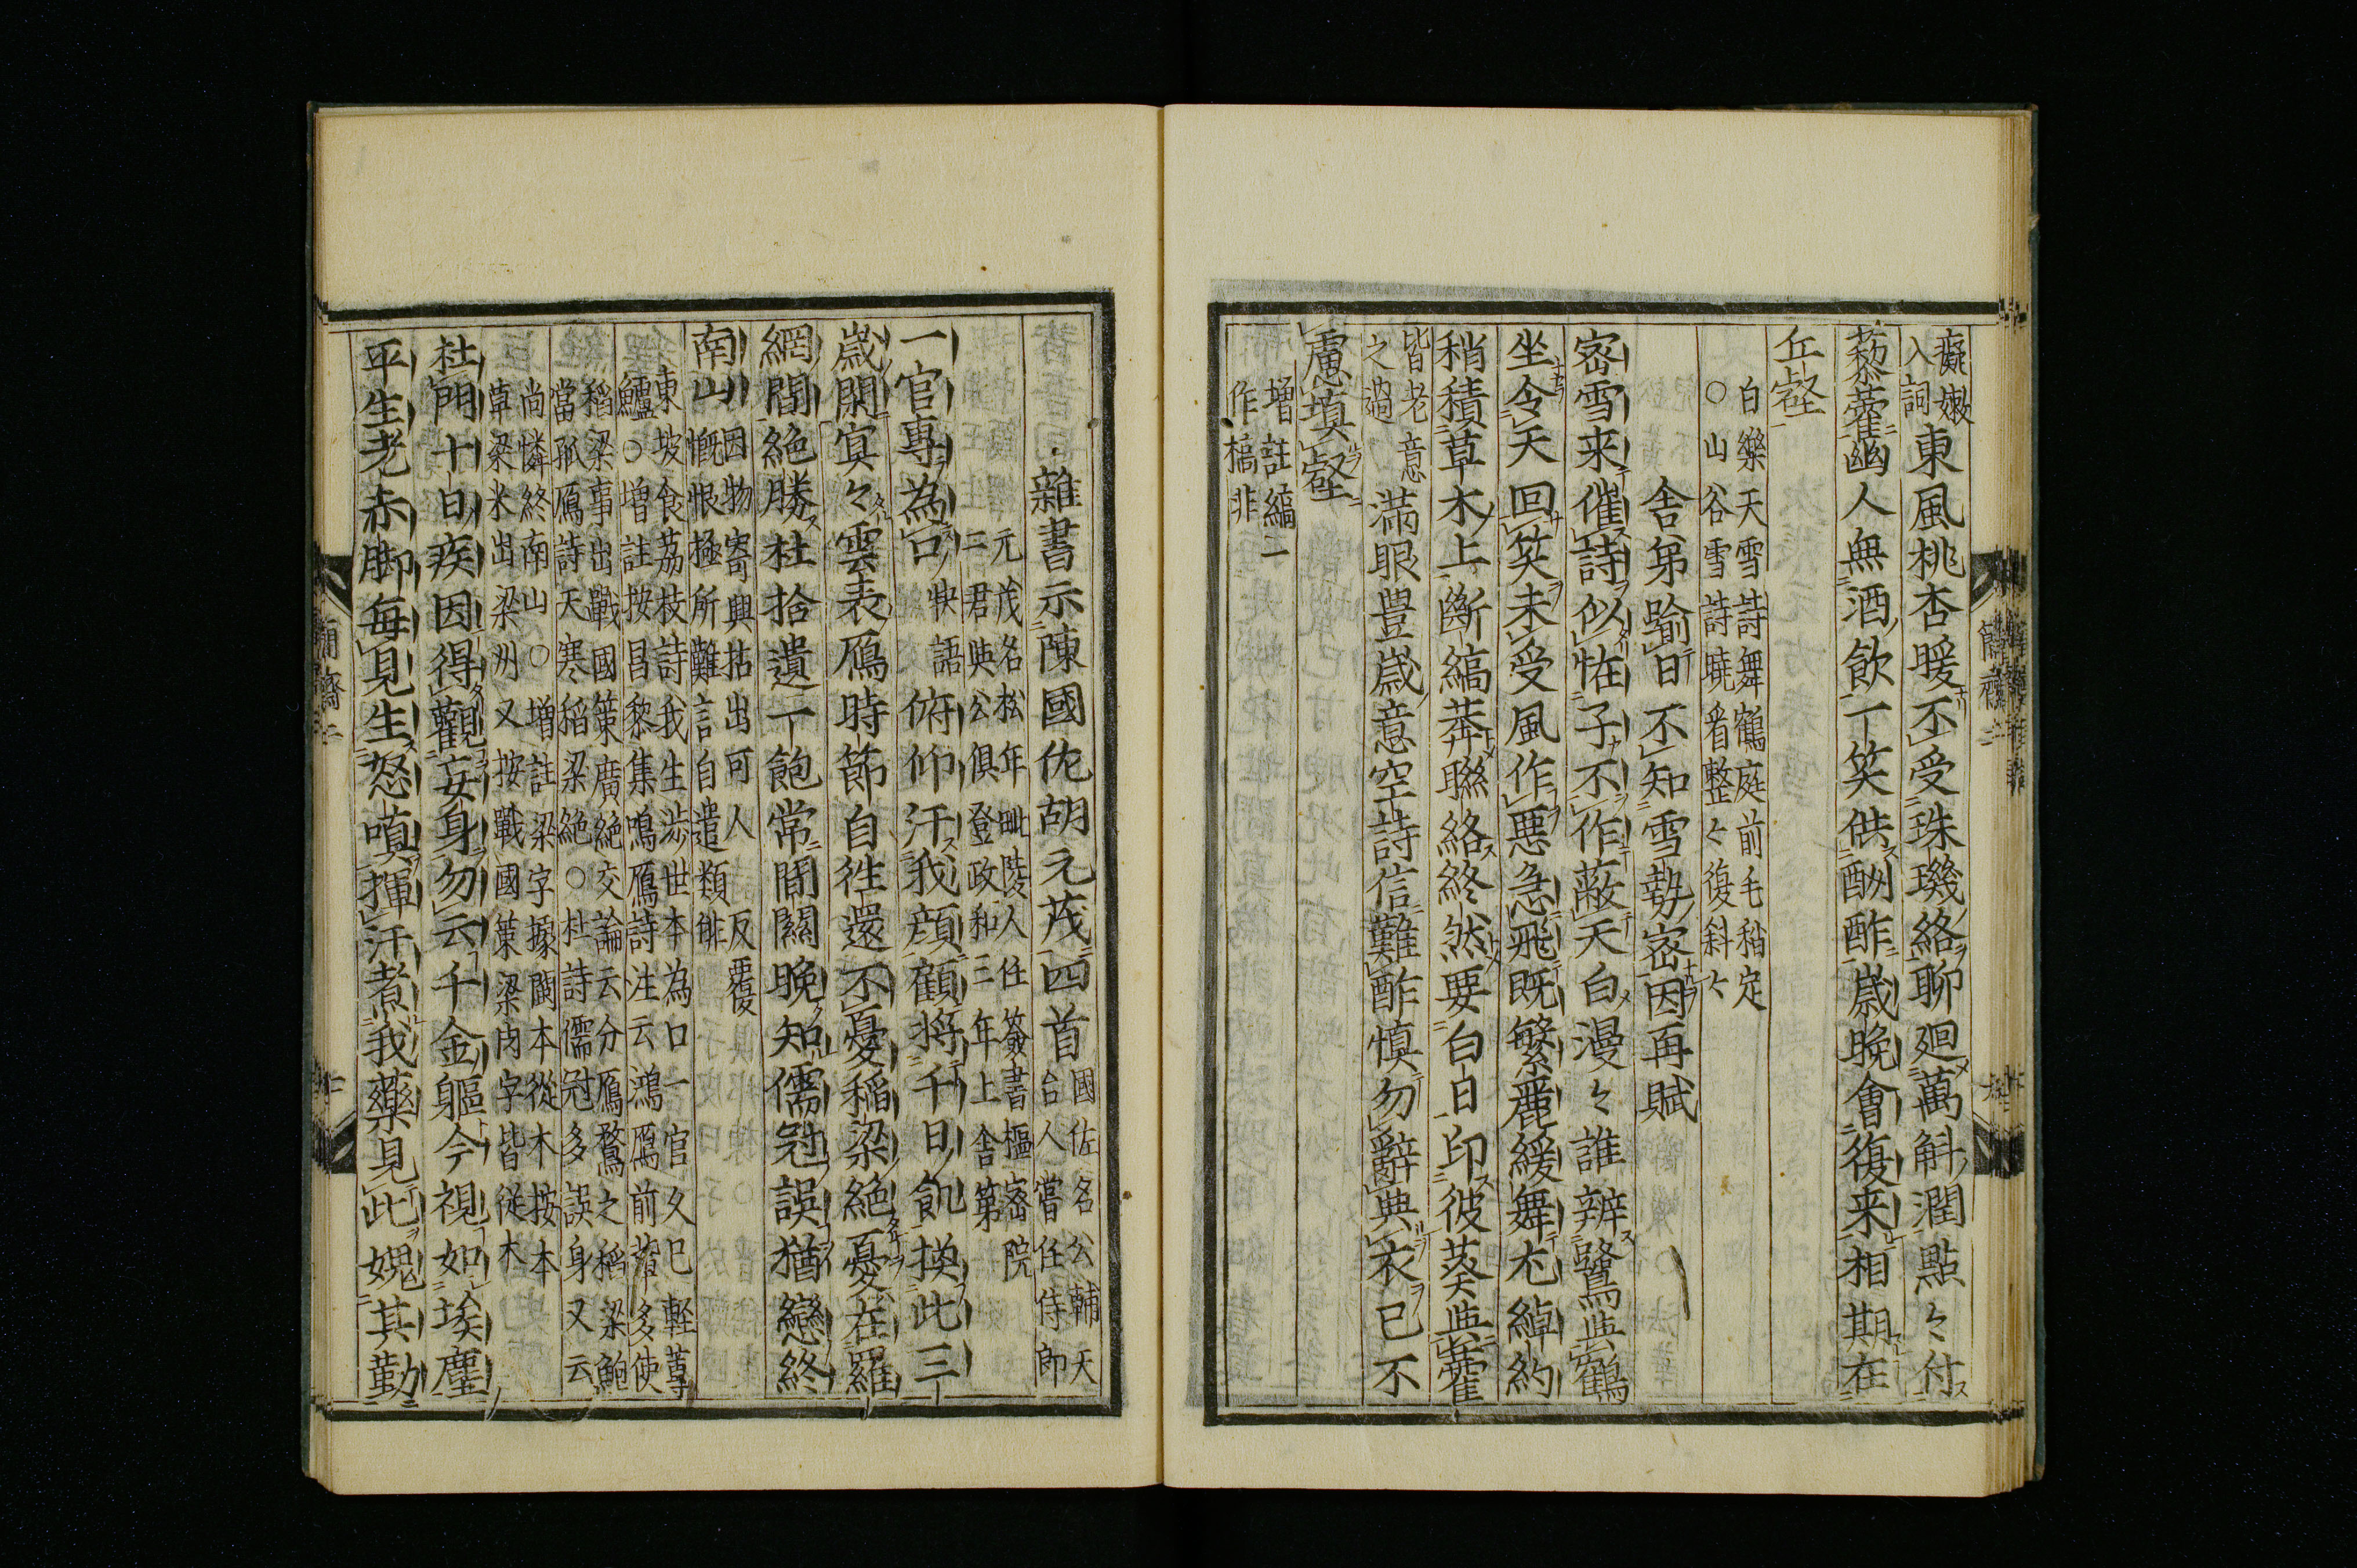 癡嫩
入詞東風桃杏暖不受珠璣絡聊廻萬斛潤點々付
藜藿幽人無酒飲一笑供酬酢歲晩會復来相期在
丘壑
白樂天雪詩舞鶴庭前毛稍定
○山谷雪詩曉看整々復斜々
舍弟踰日不知雪勢密因再賦
密雪来催詩似恠子不作蔽天白漫々誰辨鷺與鶴
坐令天回笑未受風作惡急飛既繁麗緩舞尤綽約
稍積草木上斷縞莽聯絡終然要白日印彼葵與藿
皆老意
之過滿眼豊歲意空詩信難酢慎勿辭典衣已不
慮填壑
增註縞一
作槁非
雜書示陳國佐胡元茂四首國佐名公輔天
台人嘗任侍郎
元茂名松年毗陵人任簽書樞密院
二君與公俱登政和三年上舍第
一官專為口快語俯仰汗我顔顧將千日飢換此三
歲閑冥々雲表鴈時節自徃還不憂稻粱絶憂在羅
網間絶勝杜拾遺一飽常間關晩知儒冠誤猶戀終
南山因物寄興拈出可人反覆
慨恨極所難言自遣類俳
東坡食荔枝詩我生涉世本為口一官久已輕蓴
鱸○增註按昌黎集鳴鴈詩注云鴻鴈前輩多使
稻粱事出戰國策廣絶交論云分鴈鶩之稻粱鮑
當孤鴈詩天寒稻粱絶○杜詩儒冠多誤身又云
尚憐終南山○增註粱字據閩本從木按本
草粱米出梁州又按戰國策粱肉字皆從木
杜門十日疾因得觀妄身勿云千金軀今視如埃塵
平生老赤脚每見生怒嗔揮汗煮我藥見此媿其勤